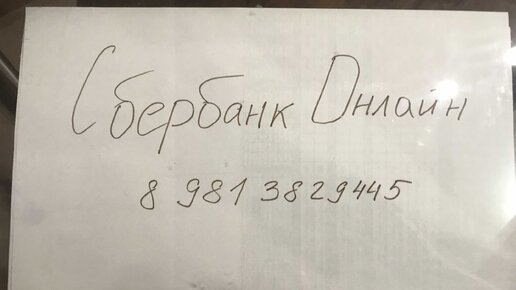 Сбербанк Онлайн
8 981 3829445